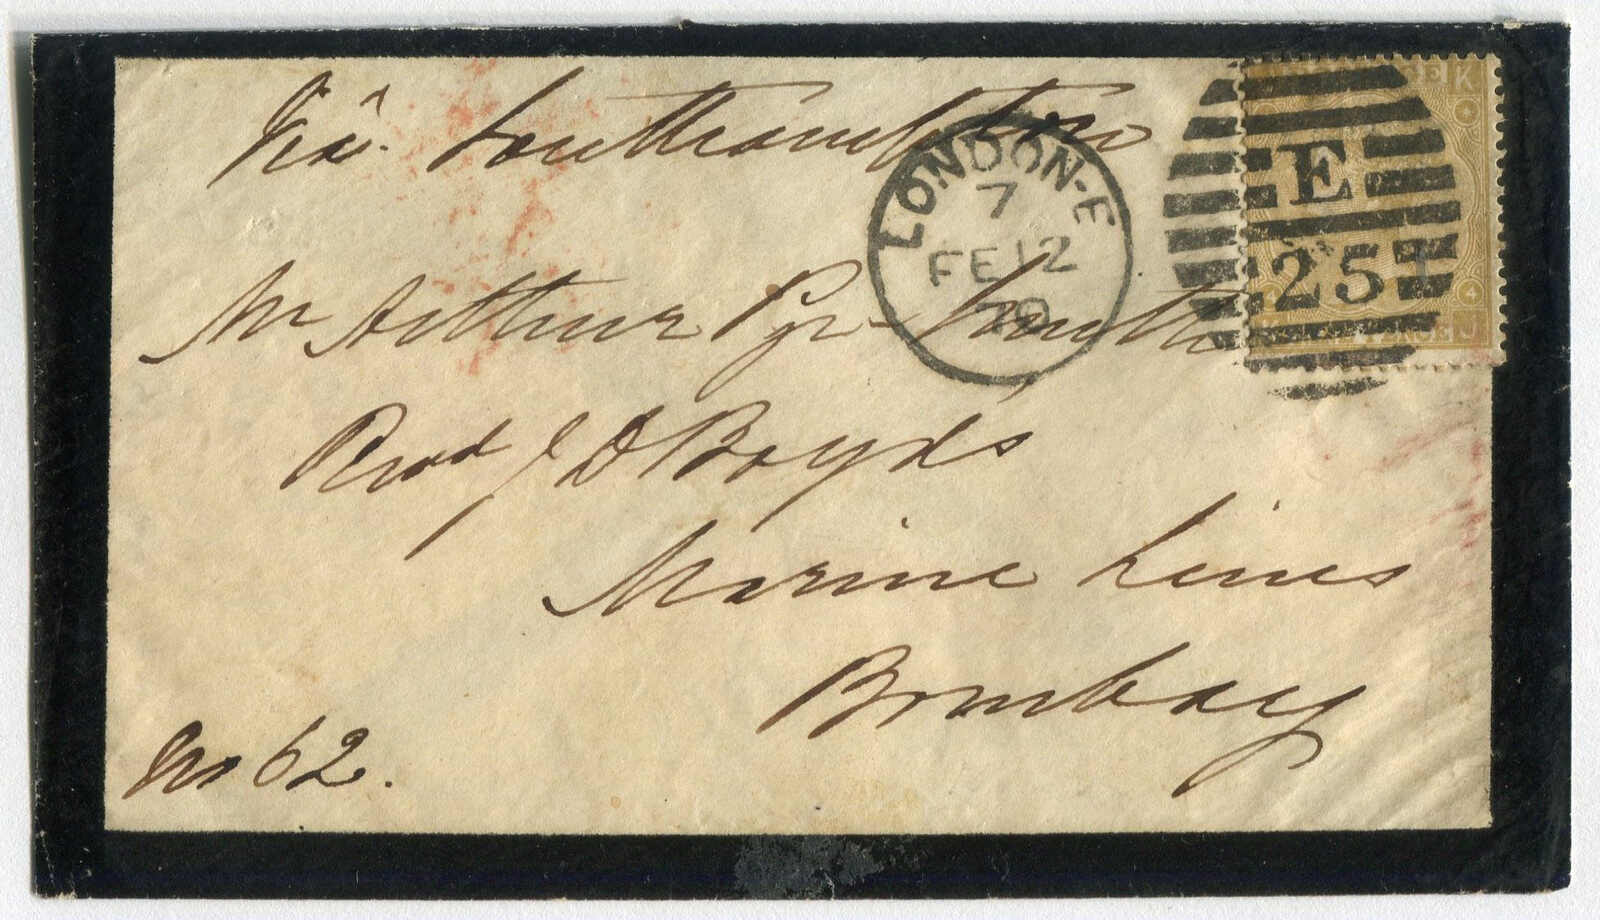 Via Southampton
LONDON-E
7
FE 12
70
E
25
K
J
Mr Arthur Pye-Smith
Revd J D Boyds
Marine Lines
Bombay
No 62.